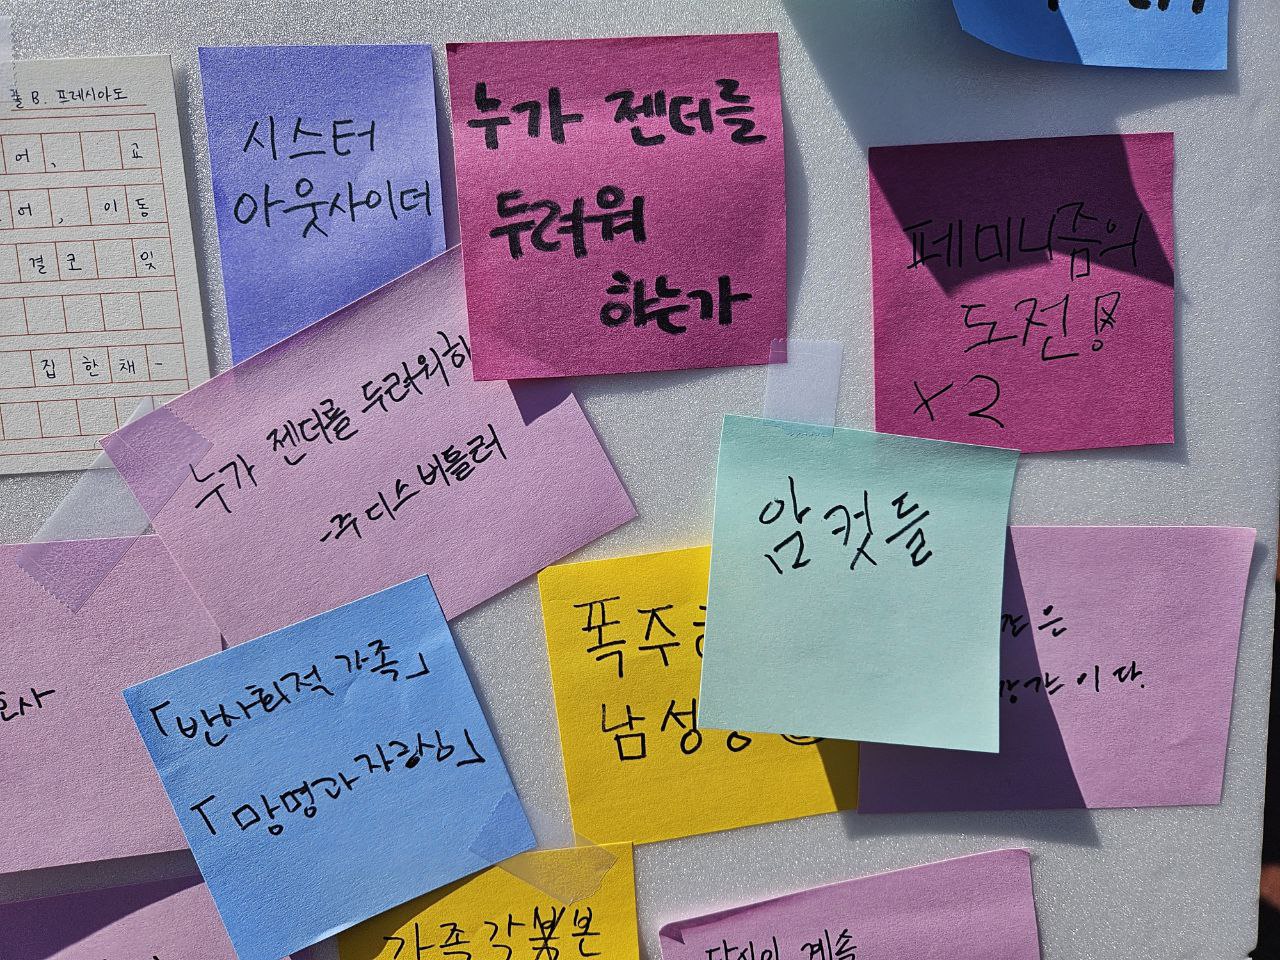 B. 프레시아도
어, 고
어, 이동
결코 잊
집 한 채 -
시스터
아웃사이더
누가 젠더를
두려워
하는가
페미니즘의
도전!
x2
누가 젠더를 두려워하
-주디스 버틀러
암컷들
폭주
남성성
은
이다.
「반사회적 가족」
「망명과 자긍심」
가족각본
당신이 계속